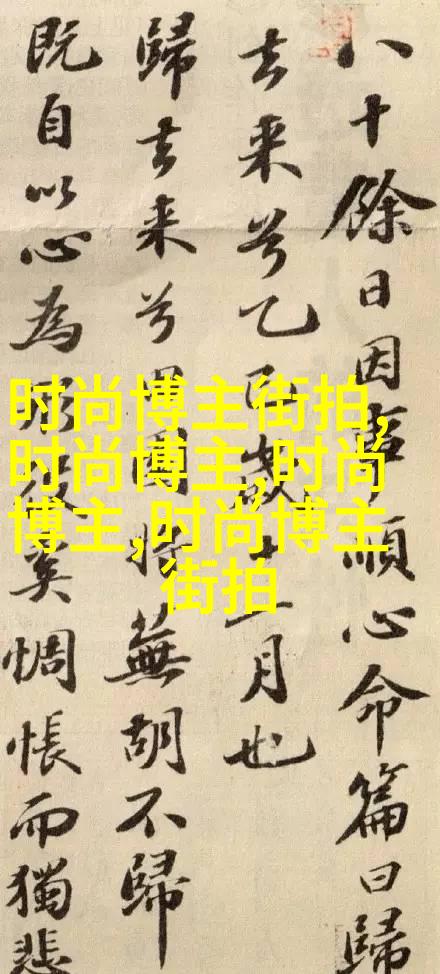 八十餘日因事順心命篇曰歸
去来兮乙巳歲十一月也
歸去来兮田園將蕪胡不歸
既自以心為形役奚惆悵而獨悲
时尚博主街拍,
时尚博主,时尚
博主,时尚博主
街拍